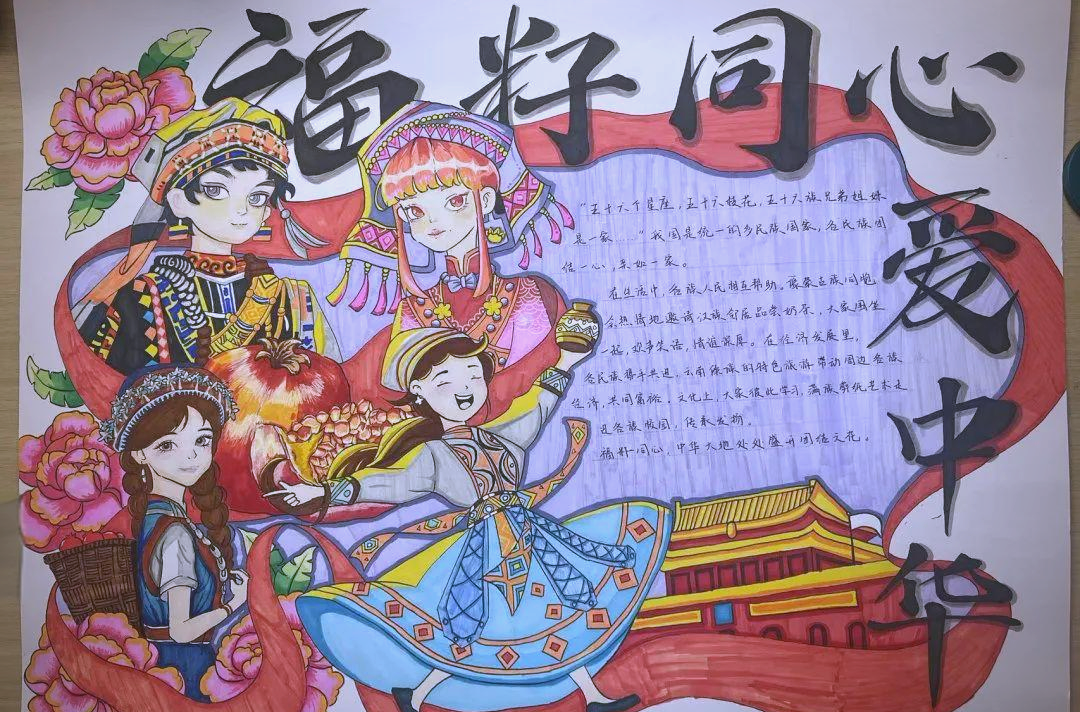 福籽同心
爱中华
“五十六个星座，五十六枝花，五十六族兄弟姐妹
是一家……”我国是统一的多民族国家，各民族团
结一心，亲如一家。
在生活中，各族人民相互帮助。蒙古族同胞
会热情地邀请汉族邻居品尝奶茶，大家围坐
一起，欢声笑语，情谊深厚。在经济发展里，
各民族携手共进，云南傣族的特色旅游带动周边各族
经济，共同富裕。文化上，大家彼此学习，满族剪纸艺术走
进各族校园，传承发扬。
福籽同心，中华大地处处盛开团结之花。